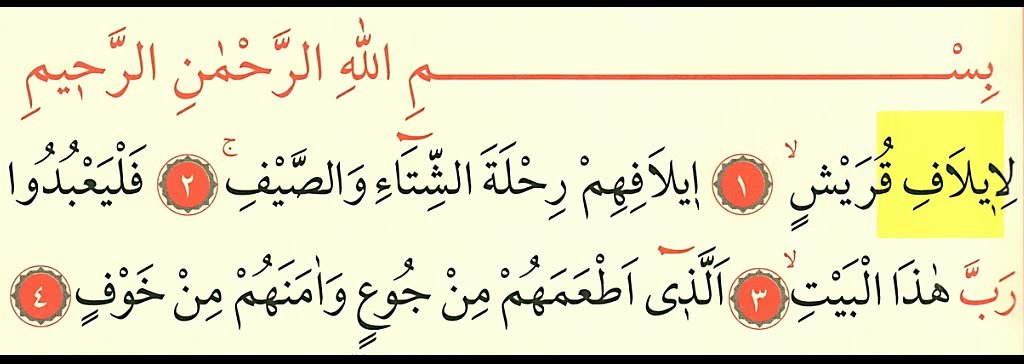 بِسْمِ اللهِ الرَّحْمٰنِ الرَّحٖيمِ
لِاٖيلَافِ قُرَيْشٍۙ ١ اٖيلَافِهِمْ رِحْلَةَ الشِّتَٓاءِ وَالصَّيْفِۚ ٢ فَلْيَعْبُدُوا
رَبَّ هٰذَا الْبَيْتِۙ ٣ اَلَّذٖٓى اَطْعَمَهُمْ مِنْ جُوعٍ وَاٰمَنَهُمْ مِنْ خَوْفٍ ٤